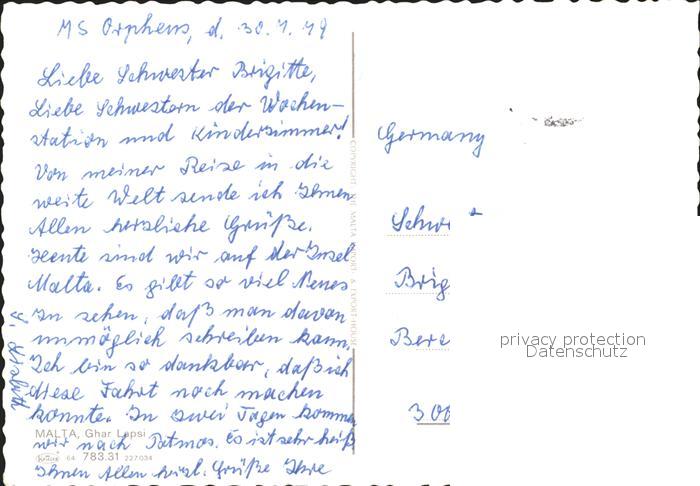 MS Orpheus, d. 30.7.79
Liebe Schwester Brigitte,
Liebe Schwestern der Wochen-
station und Kinderzimmer!
Von meiner Reise in die
weite Welt sende ich Ihnen
Allen herzliche Grüße.
Heute sind wir auf der Insel
Malta. Es gibt so viel Neues
zu sehen, daß man davon
unmöglich schreiben kann.
Ich bin so dankbar, daß ich
diese Fahrt noch machen
konnte. In zwei Tagen kommen
wir nach Patmos. Es ist sehr heiß
Ihnen Allen herzl. Grüße Ihre
MALTA, Ghar Lapsi
64 783.31 227034
Germany
Schw
Brig
Berc
300
privacy protection
Datenschutz